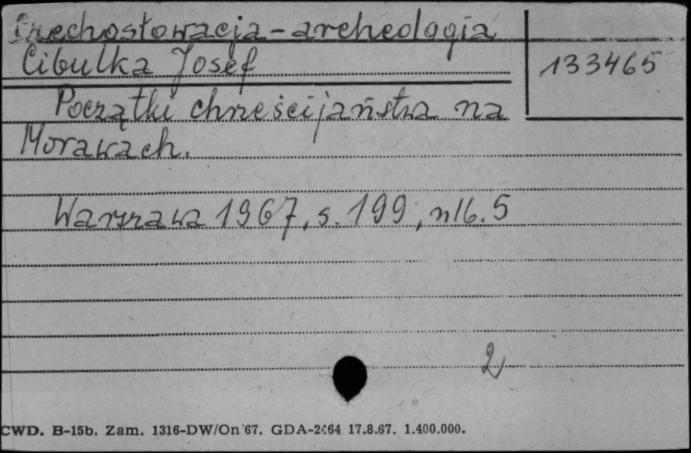 Czechosłowacja - archeologia
Cibulka Josef
133465
Początki chrześcijaństwa na
Morawach.
Warszawa 1967, s. 199, nlb. 5
2
CWD. B-15b. Zam. 1316-DW/On 67. GDA-2464 17.8.67. 1.400.000.